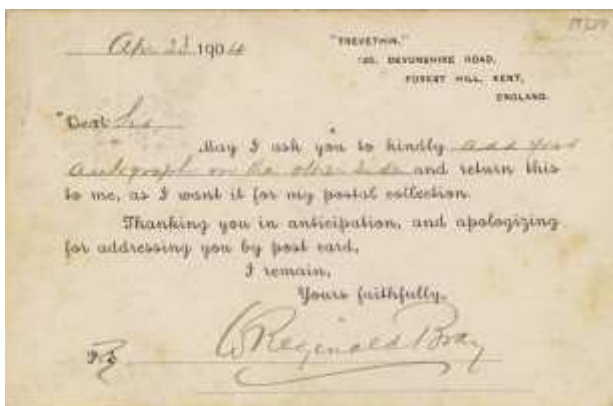 Apr 23 1904
"TREVETHIN,"
135, DEVONSHIRE ROAD,
FOREST HILL, KENT,
ENGLAND.
Dear Sir
May I ask you to kindly add your
autograph on the other side and return this
to me, as I want it for my postal collection.
Thanking you in anticipation, and apologizing
for addressing you by post card,
I remain,
Yours faithfully,
W Reginald Bray